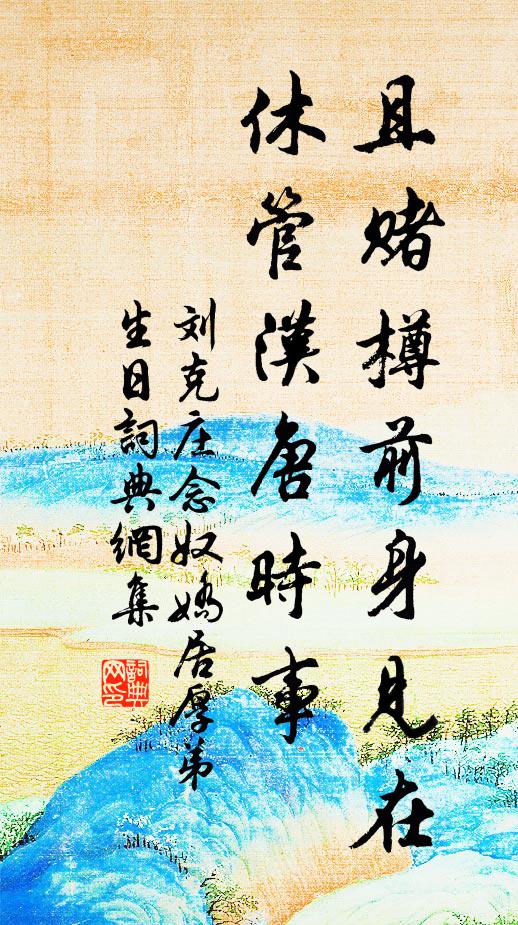 且赌樽前身見在
休管漢唐時事
刘克庄念奴嬌居厚弟
生日詞典網集
詞典
网印